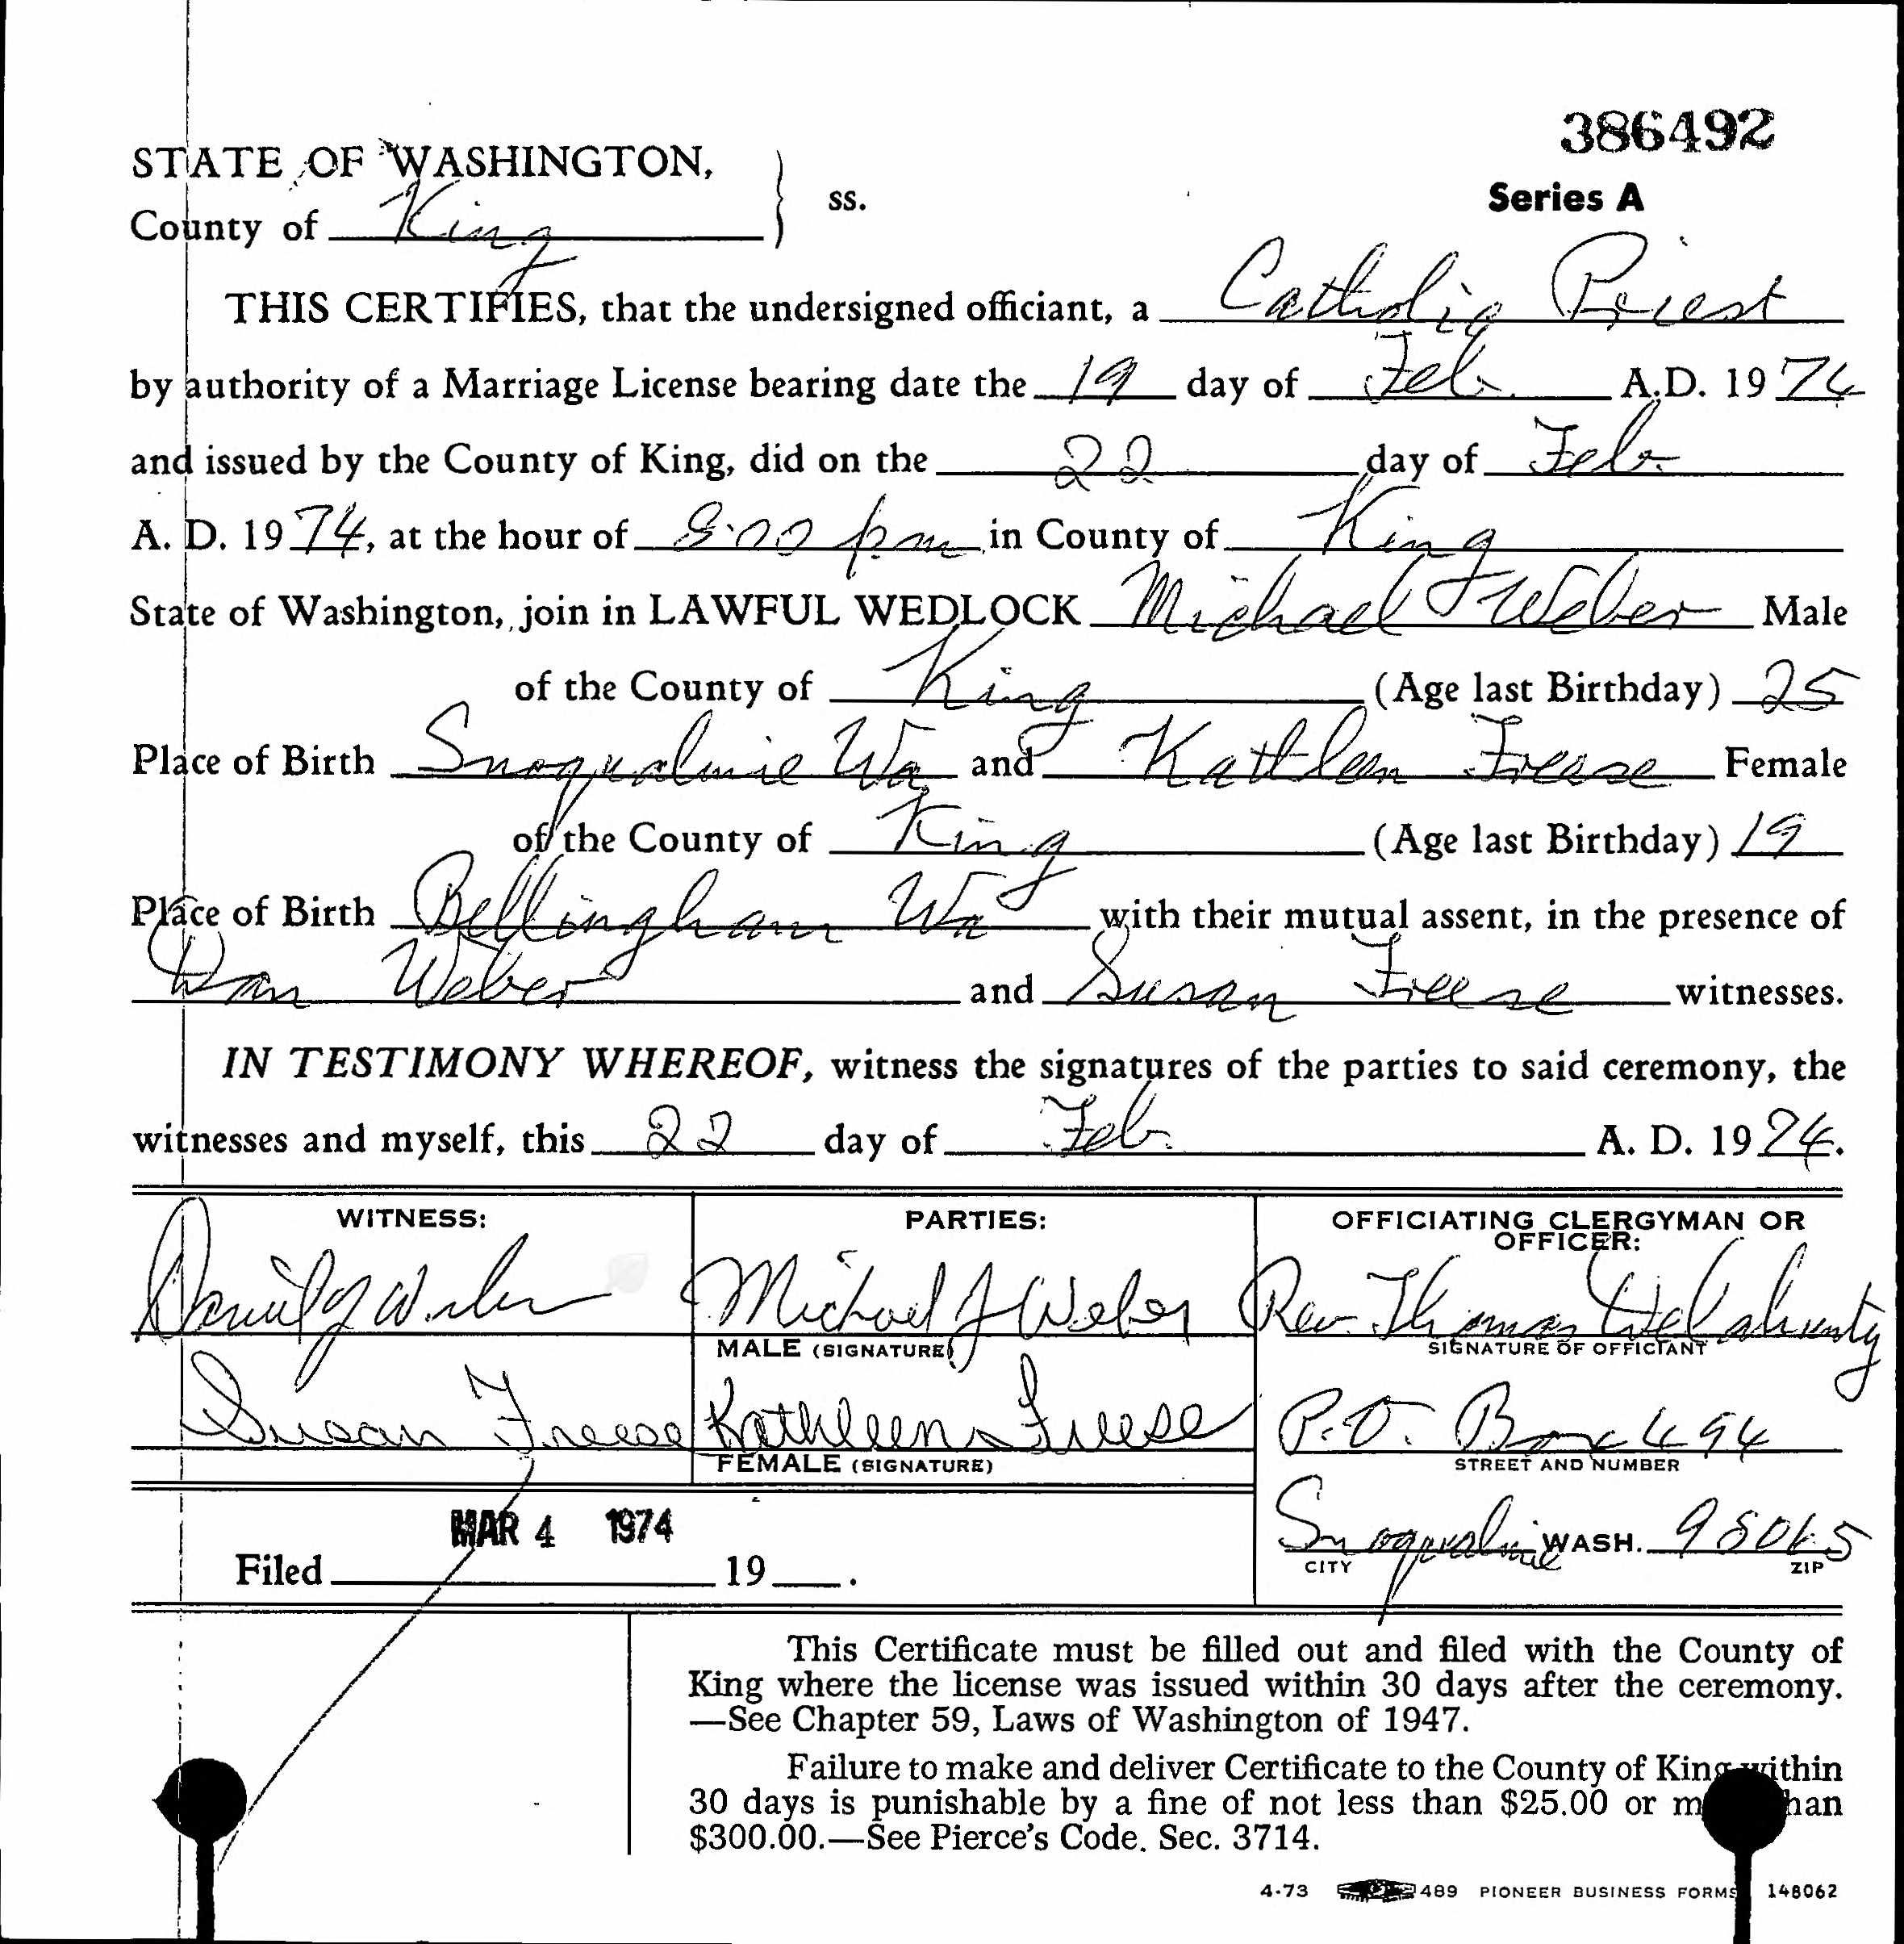 386492
STATE OF WASHINGTON,
ss.
Series A
County of King
THIS CERTIFIES, that the undersigned officiant, a Catholic Priest
by authority of a Marriage License bearing date the 19 day of Feb. A.D. 19 74
and issued by the County of King, did on the 22 day of Feb.
A. D. 19 74, at the hour of 8:00 pm in County of King
State of Washington, join in LAWFUL WEDLOCK Michael J Weber Male
of the County of King (Age last Birthday) 25
Place of Birth Snoqualmie Wa and Kathleen Freese Female
of the County of King (Age last Birthday) 19
Place of Birth Bellingham Wa with their mutual assent, in the presence of
Dan Weber and Susan Freese witnesses.
IN TESTIMONY WHEREOF, witness the signatures of the parties to said ceremony, the
witnesses and myself, this 22 day of Feb. A. D. 19 74.
WITNESS: PARTIES: OFFICIATING CLERGYMAN OR
OFFICER:
Daniel J Weber Michael J Weber Rev. Thomas Delahunty
MALE (SIGNATURE) SIGNATURE OF OFFICIANT
Susan Freese Kathleen Freese P.O. Box 494
FEMALE (SIGNATURE) STREET AND NUMBER
MAR 4 1974
Snoqualmie WASH. 98065
CITY ZIP
Filed 19 .
This Certificate must be filled out and filed with the County of
King where the license was issued within 30 days after the ceremony.
—See Chapter 59, Laws of Washington of 1947.
Failure to make and deliver Certificate to the County of King within
30 days is punishable by a fine of not less than $25.00 or m han
$300.00.—See Pierce's Code, Sec. 3714.
4-73 489 PIONEER BUSINESS FORMS 148062